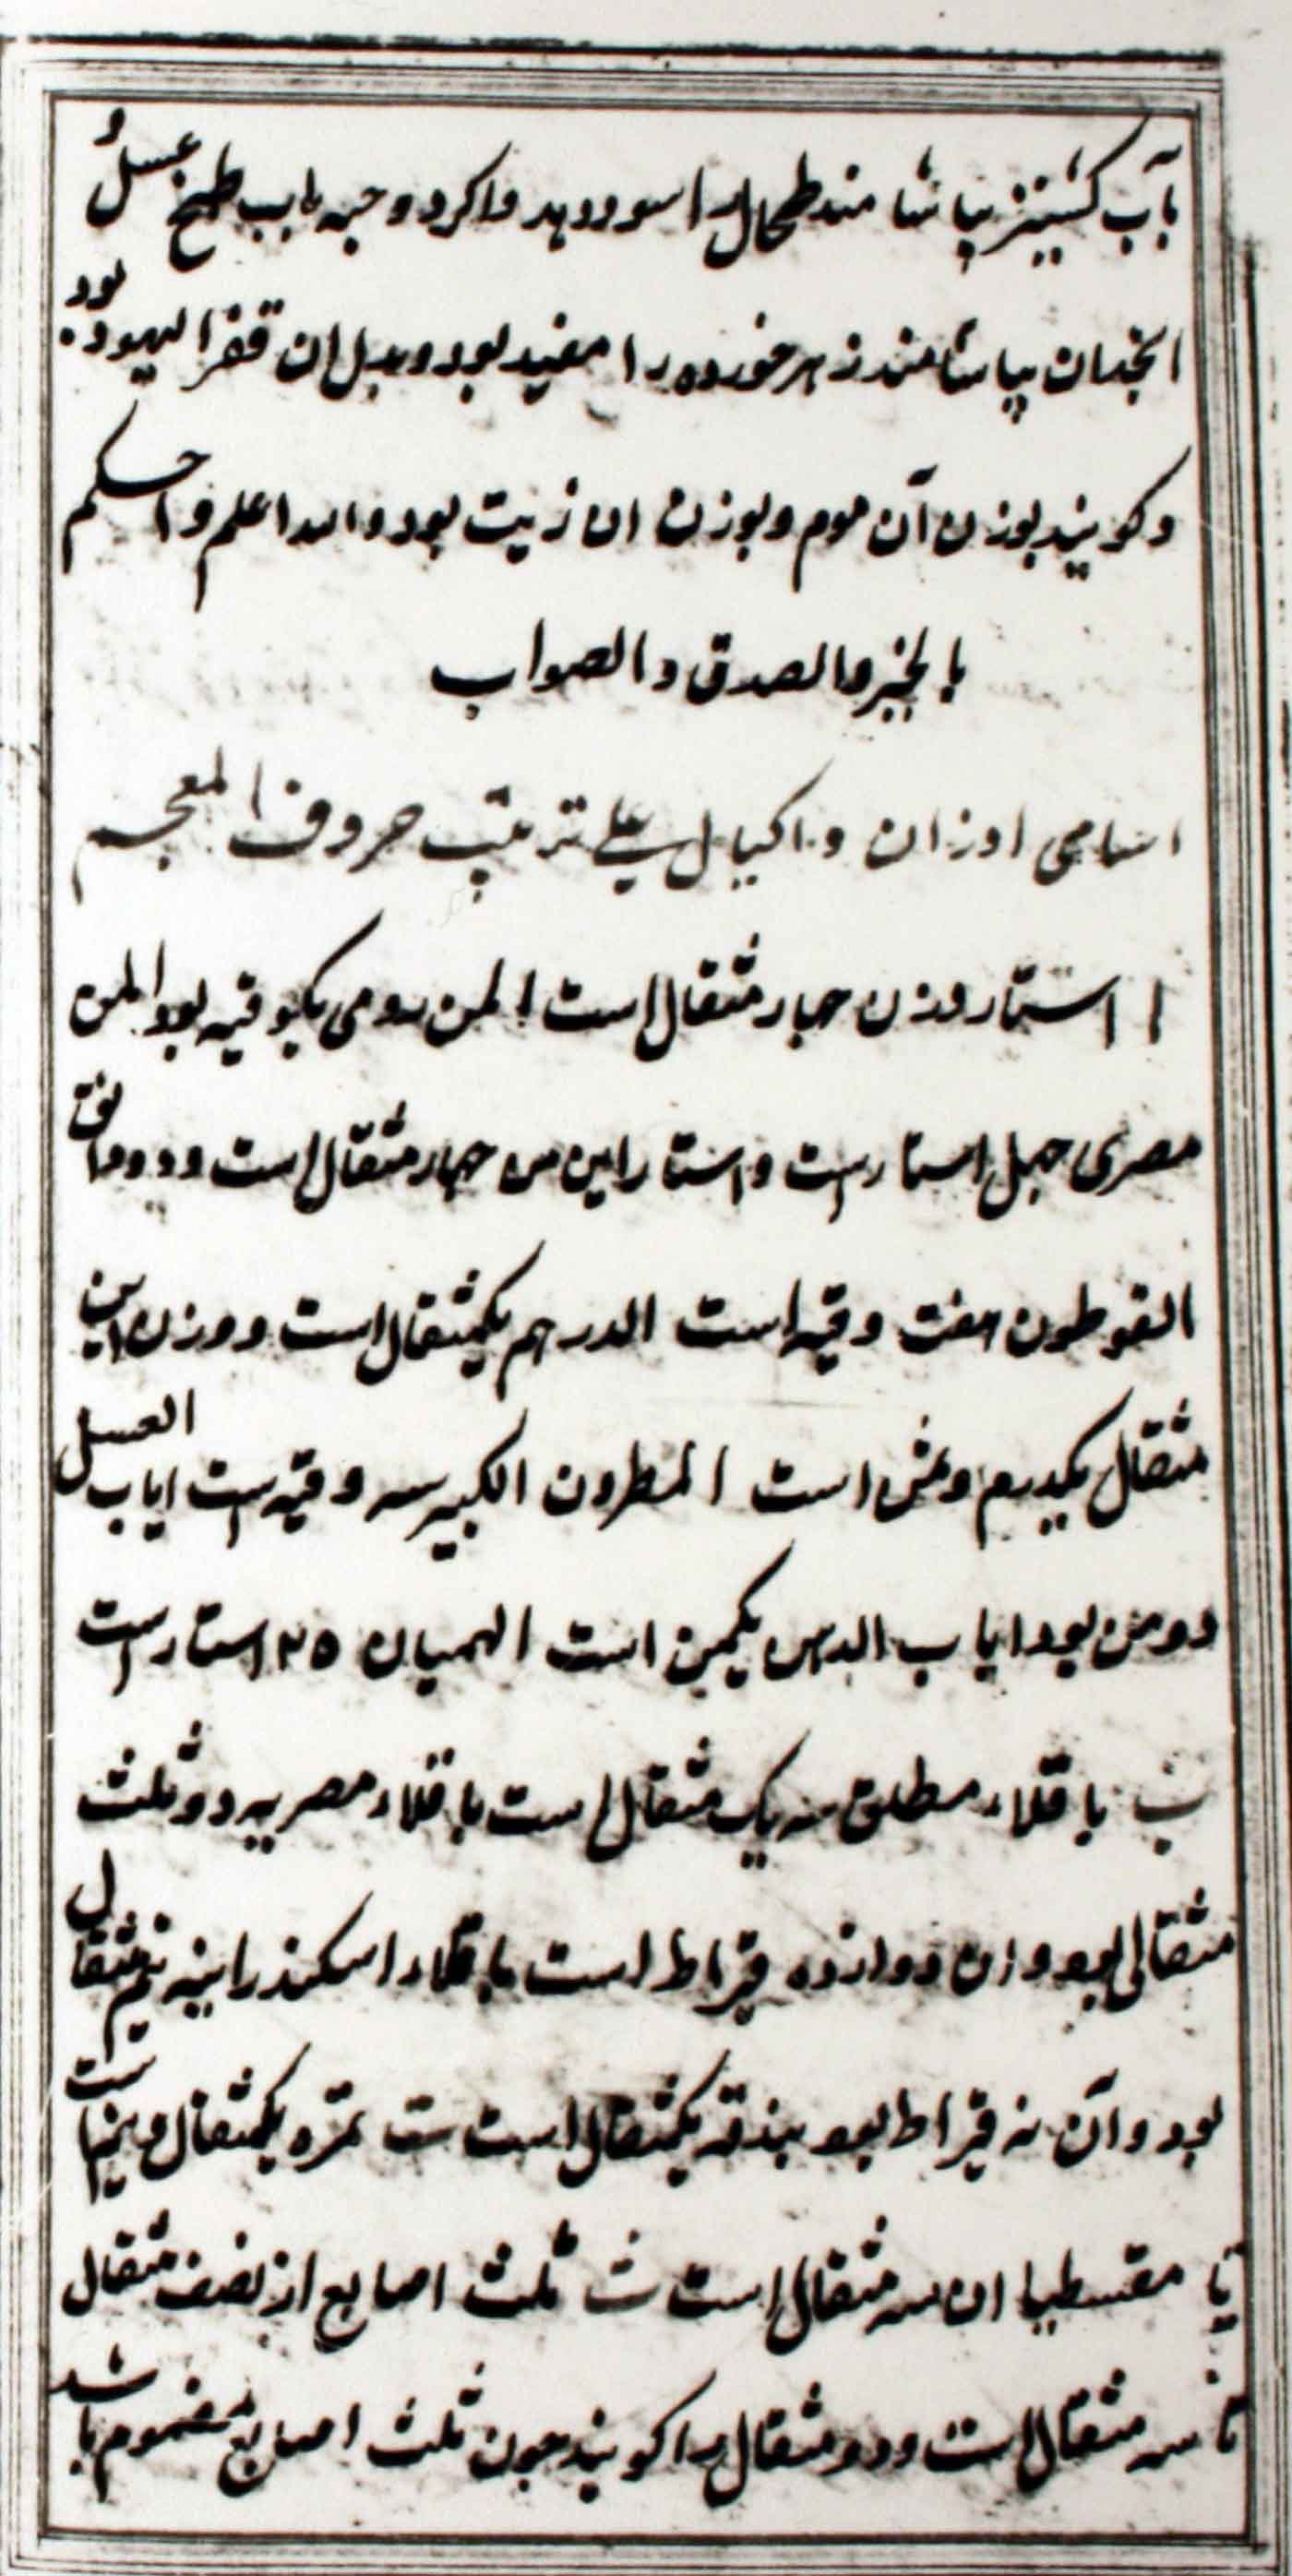 بآب کشنیز بیاشامند طحال را سود دهد و اکر دو حبه بآب طبخ عسل و
انجدان بیاشامند زهر خورده را مفید بود و بدل ان قفر الیهود بود
وکویند بوزن آن موم و بوزن ان زیت بود والله اعلم و احکم
بالخیر والصدق والصواب
اسامی اوزان و اکیال علی ترتیب حروف المعجم
ا استار وزن چهار مثقال است المن رومی یکوقیه بود المن
مصری چهل استار است و استار این من چهار مثقال است و دو دانق
القوطون هفت وقیه است الدرهم یکمثقال است و وزن این
مثقال یکدرم و است الکبیر سه وقیه است ایاب العسل
دو من بود ایاب الدهن یکمن است الهمیان ۲۵ استار است
ب باقلاء مطلق سه یک مثقال است باقلاء مصریه دو ثلث
مثقالی بود و ان دوازده قیراط است باقلاء اسکندرانیه نیم مثقال
بود و آن نه قیراط بود بندقه یکمثقال است ت تمره یکمثقال و نیم است
یا مقسطیا ان سه مثقال است ث ثلث اصابع از نصف مثقال
تا سه مثقال است و دو مثقال را کویند چون ثلث اصابع مضموم باشد